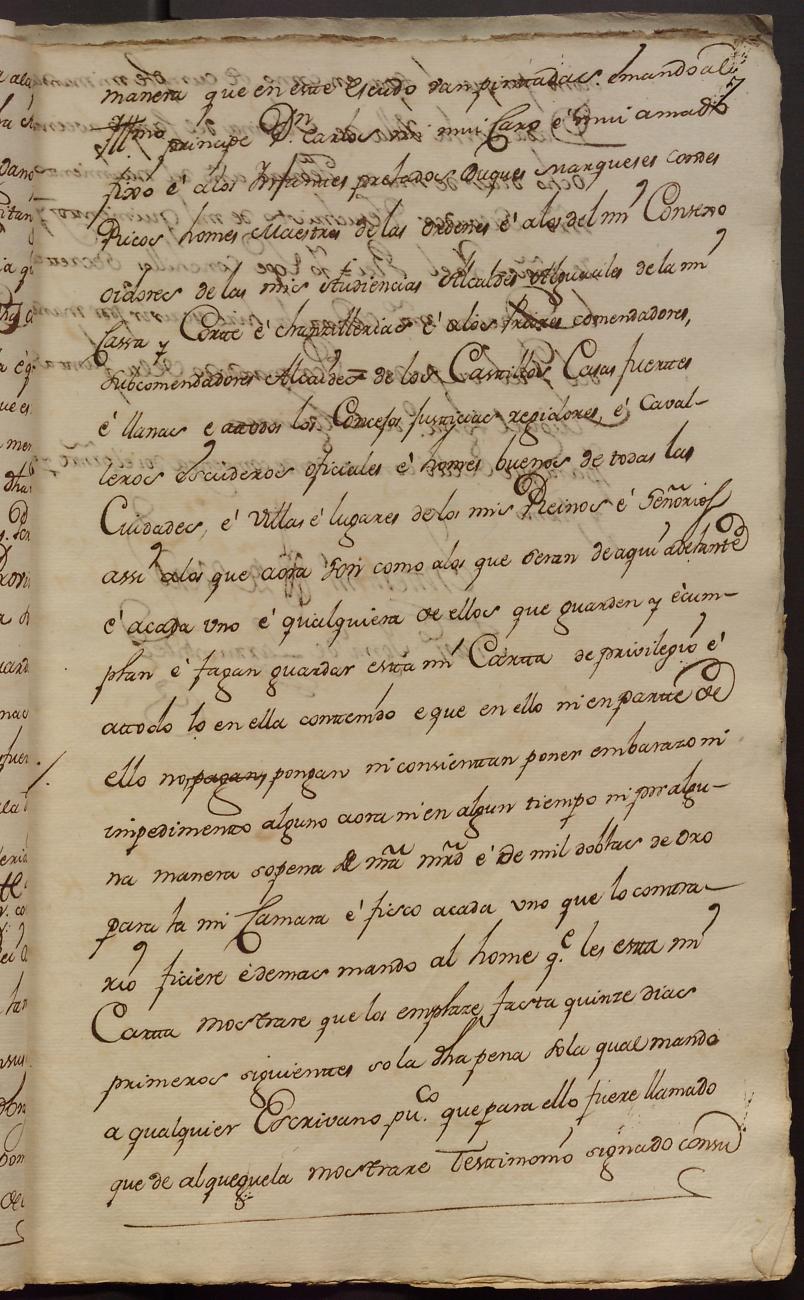 7
manera que en este Escudo van pintadas. émando al
Ill.mo principe D.n Carlos mi mui Caro é mui amado
fixo é alos Infantes prelados Duques Marqueses Condes
Ricos homes Maestres de las ordenes é alos del mi Consexo
oidores de las mis Audiencias Alcaldes Alguaciles de la mi
Cassa y Corte é chanzillerias é alos fraires comendadores,
subcomendadores Alcaides de los Castillos Casas fuertes
é llanas e attodos los Concejos Justicias regidores, é Caval-
leros escuderos oficiales é homes buenos de todas las
Cuidades, é Villas é lugares delos mis Reinos é Señorios
assi alos que aora son como alos que seran de aqui adelante
é acada uno é qualquiera de ellos que guarden y écum-
plan é fagan guardar estta mi Cartta de privilegio é
attodo lo en ella contenido e que en ello ni en partte de
ello no, pagan, pongan ni consienttan poner embarazo ni
impedimentto alguno aora ni en algun tiempo ni por algu-
na manera sopena de mra mrd é de mil doblas de oro
para la mi Camara é fisco acada uno que lo contra-
rio ficiere édemas mando al home q.e les estta mi
Cartta mosttrare que los emplaze fasta quinze dias
primeros siguienttes so la dha pena sola qual mando
a qualquier Escrivano pu.co que para ello fuere llamado
que de alquequela mosttrare Testtimonio signado consu